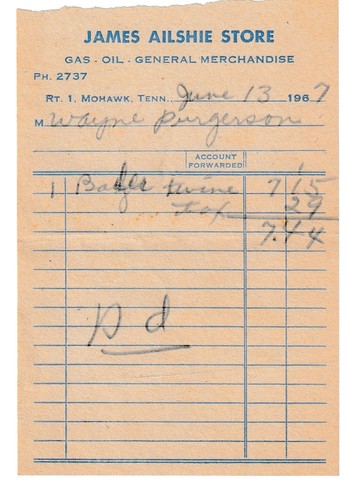 JAMES AILSHIE STORE
GAS - OIL - GENERAL MERCHANDISE
PH. 2737
RT. 1, MOHAWK, TENN., June 13 1967
M Wayne Purgerson
ACCOUNT
FORWARDED
1 Baler twine 7 15
tax 29
7.44
Pd